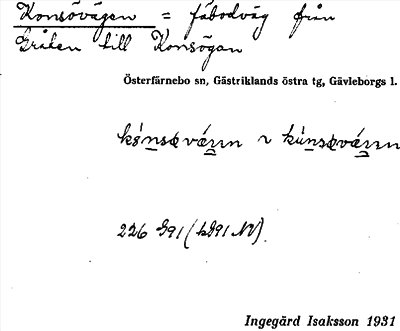 Konsövägen = fäbodväg från
Grålen till Konsögan
Österfärnebo sn, Gästriklands östra tg, Gävleborgs l.
226 G91 (hJ91 NV).
Ingegärd Isaksson 1931